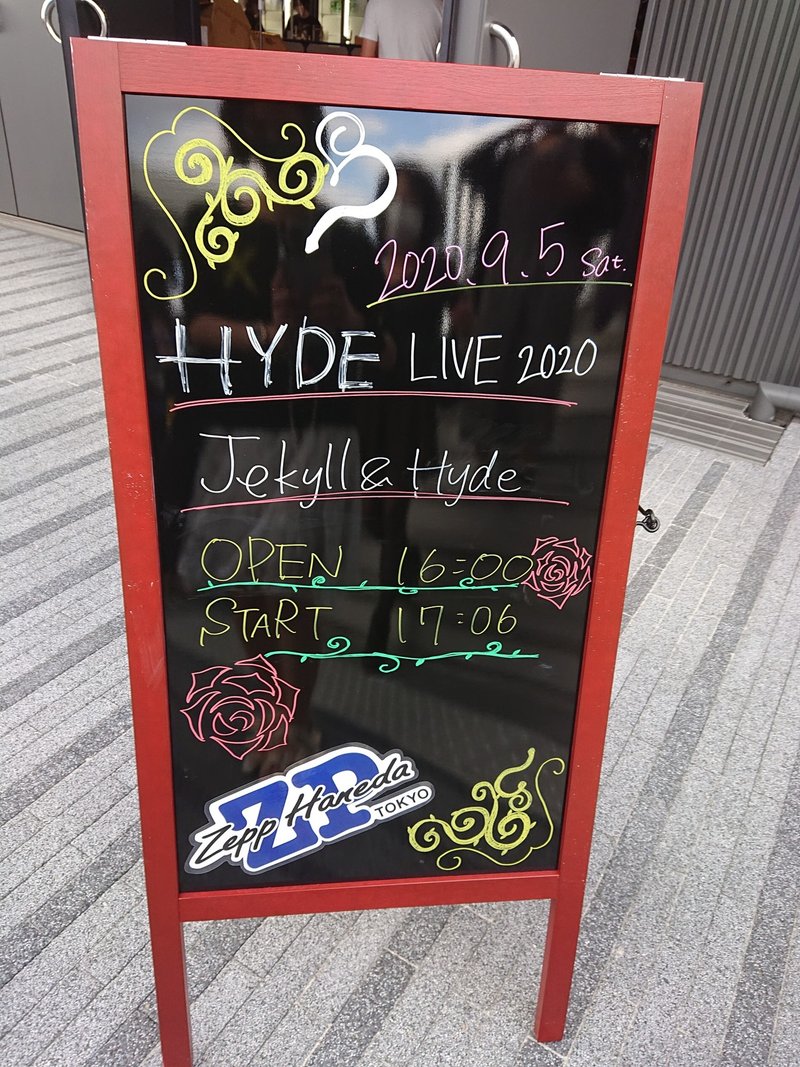 2020.9.5 Sat.
HYDE LIVE 2020
Jekyll & Hyde
OPEN 16:00
START 17:06
ZP
Zepp Haneda
TOKYO